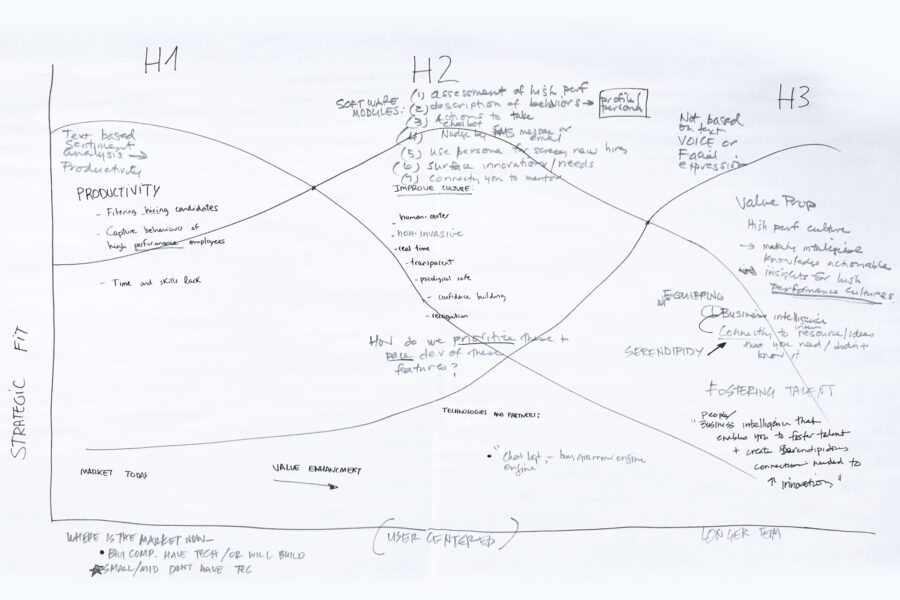 H1
H2
H3
SOFTWARE
MODULES:
(1) assessment of high perf
(2) description of behaviors → profile/
persona
(3) Actions to take
chatbot
(4) Nudge by SMS message or
email
(5) use persona for screeng new hires
(6) surface innovations/needs
(7) Connectg you to mentor
Text based
Sentiment
analysis →
Productivity
PRODUCTIVITY
- Filtering hiring candidates
- Capture behaviours of
high performance employees
- Time and skills lack
IMPROVE CULTURE:
- human-center
- non-invasive
- real time
- transparent
- psological safe
- confidence building
- recognition
How do we prioritize these +
pace dev of these
features?
Not based
on text
VOICE or
Facial
expression
Value Prop
High perf culture
→ making inteligise
knowledge actionable
insights for high
performance cultures.
EQUIPPING
Business intelligence
Connectig to resource/ideas
that you need/didn't
know it
SERENDIPIDY
FOSTERING TALENT
people/
"Business intelligence that
enables you to foster talent
+ create serendipidous
connections needed to
↑ innovations"
TECHNOLOGIES AND PARTNERS:
engine
STRATEGIC FIT
MARKET TODAY
VALUE ENHANCEMENT
WHERE IS THE MARKET NOW-
• BIG COMP. HAVE TECH/OR WILL BUILD
SMALL/MID DONT HAVE TEC
(USER CENTERED)
LONGER TERM